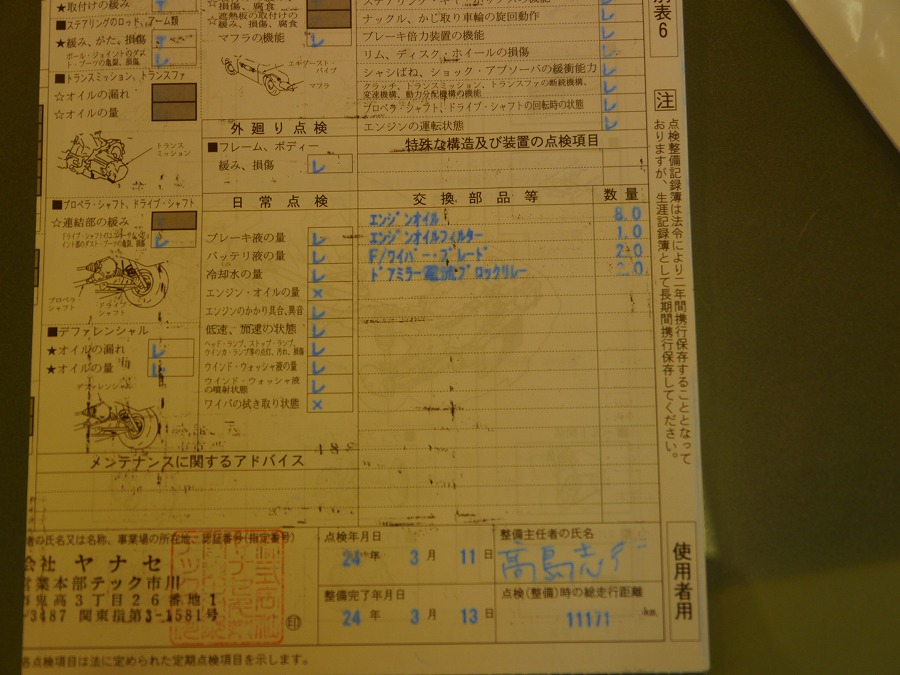 ★取付けの緩み
■ステアリングのロッド、アーム類
★緩み、がた、損傷
ボール・ジョイントのダスト・ブーツの亀裂、損傷
■トランスミッション、トランスファ
☆オイルの漏れ
☆オイルの量
トランスミッション
■プロペラ・シャフト、ドライブ・シャフト
☆連結部の緩み
プロペラシャフト
ドライブシャフト
■デファレンシャル
★オイルの漏れ
★オイルの量
デファレンシャル
損傷、腐食
☆遮熱板の取付けの緩み、損傷、腐食
マフラの機能
エキゾーストパイプ
マフラ
外廻り点検
■フレーム、ボディー
緩み、損傷
日常点検
ブレーキ液の量 レ
バッテリ液の量 レ
冷却水の量 レ
エンジン・オイルの量 ×
エンジンのかかり具合、異音 レ
低速、加速の状態 レ
ヘッド・ランプ、ストップ・ランプ、ウインカ・ランプ等の点灯、汚れ、損傷 レ
ウインド・ウォッシャ液の量 レ
ウインド・ウォッシャ液の噴射状態 レ
ワイパの拭き取り状態 ×
ナックル、かじ取り車輪の旋回動作
ブレーキ倍力装置の機能
リム、ディスク・ホイールの損傷
シャシばね、ショック・アブソーバの緩衝能力
クラッチ、トランスミッション、トランスファの断続機構、変速機構、動力分配機構の機能
プロペラ・シャフト、ドライブ・シャフトの回転時の状態
エンジンの運転状態
特殊な構造及び装置の点検項目
交換部品等 数量
エンジンオイル 8.0
エンジンオイルフィルター 1.0
F/ワイパー・ブレード 2.0
ドアミラー電流ブロックリレー
メンテナンスに関するアドバイス
者の氏名又は名称、事業場の所在地、認証番号(指定番号)
会社 ヤナセ
営業本部テック市川
鬼高3丁目26番地1
3487 関東指第3-1581号
印
点検年月日
24年 3月 11日
整備完了年月日
24年 3月 13日
整備主任者の氏名
点検(整備)時の総走行距離
11171 km
各点検項目は法に定められた定期点検項目を示します。
別表6
注 点検整備記録簿は法令により二年間携行保存することとなって
おりますが、生涯記録簿として長期間携行保存してください。
使用者用